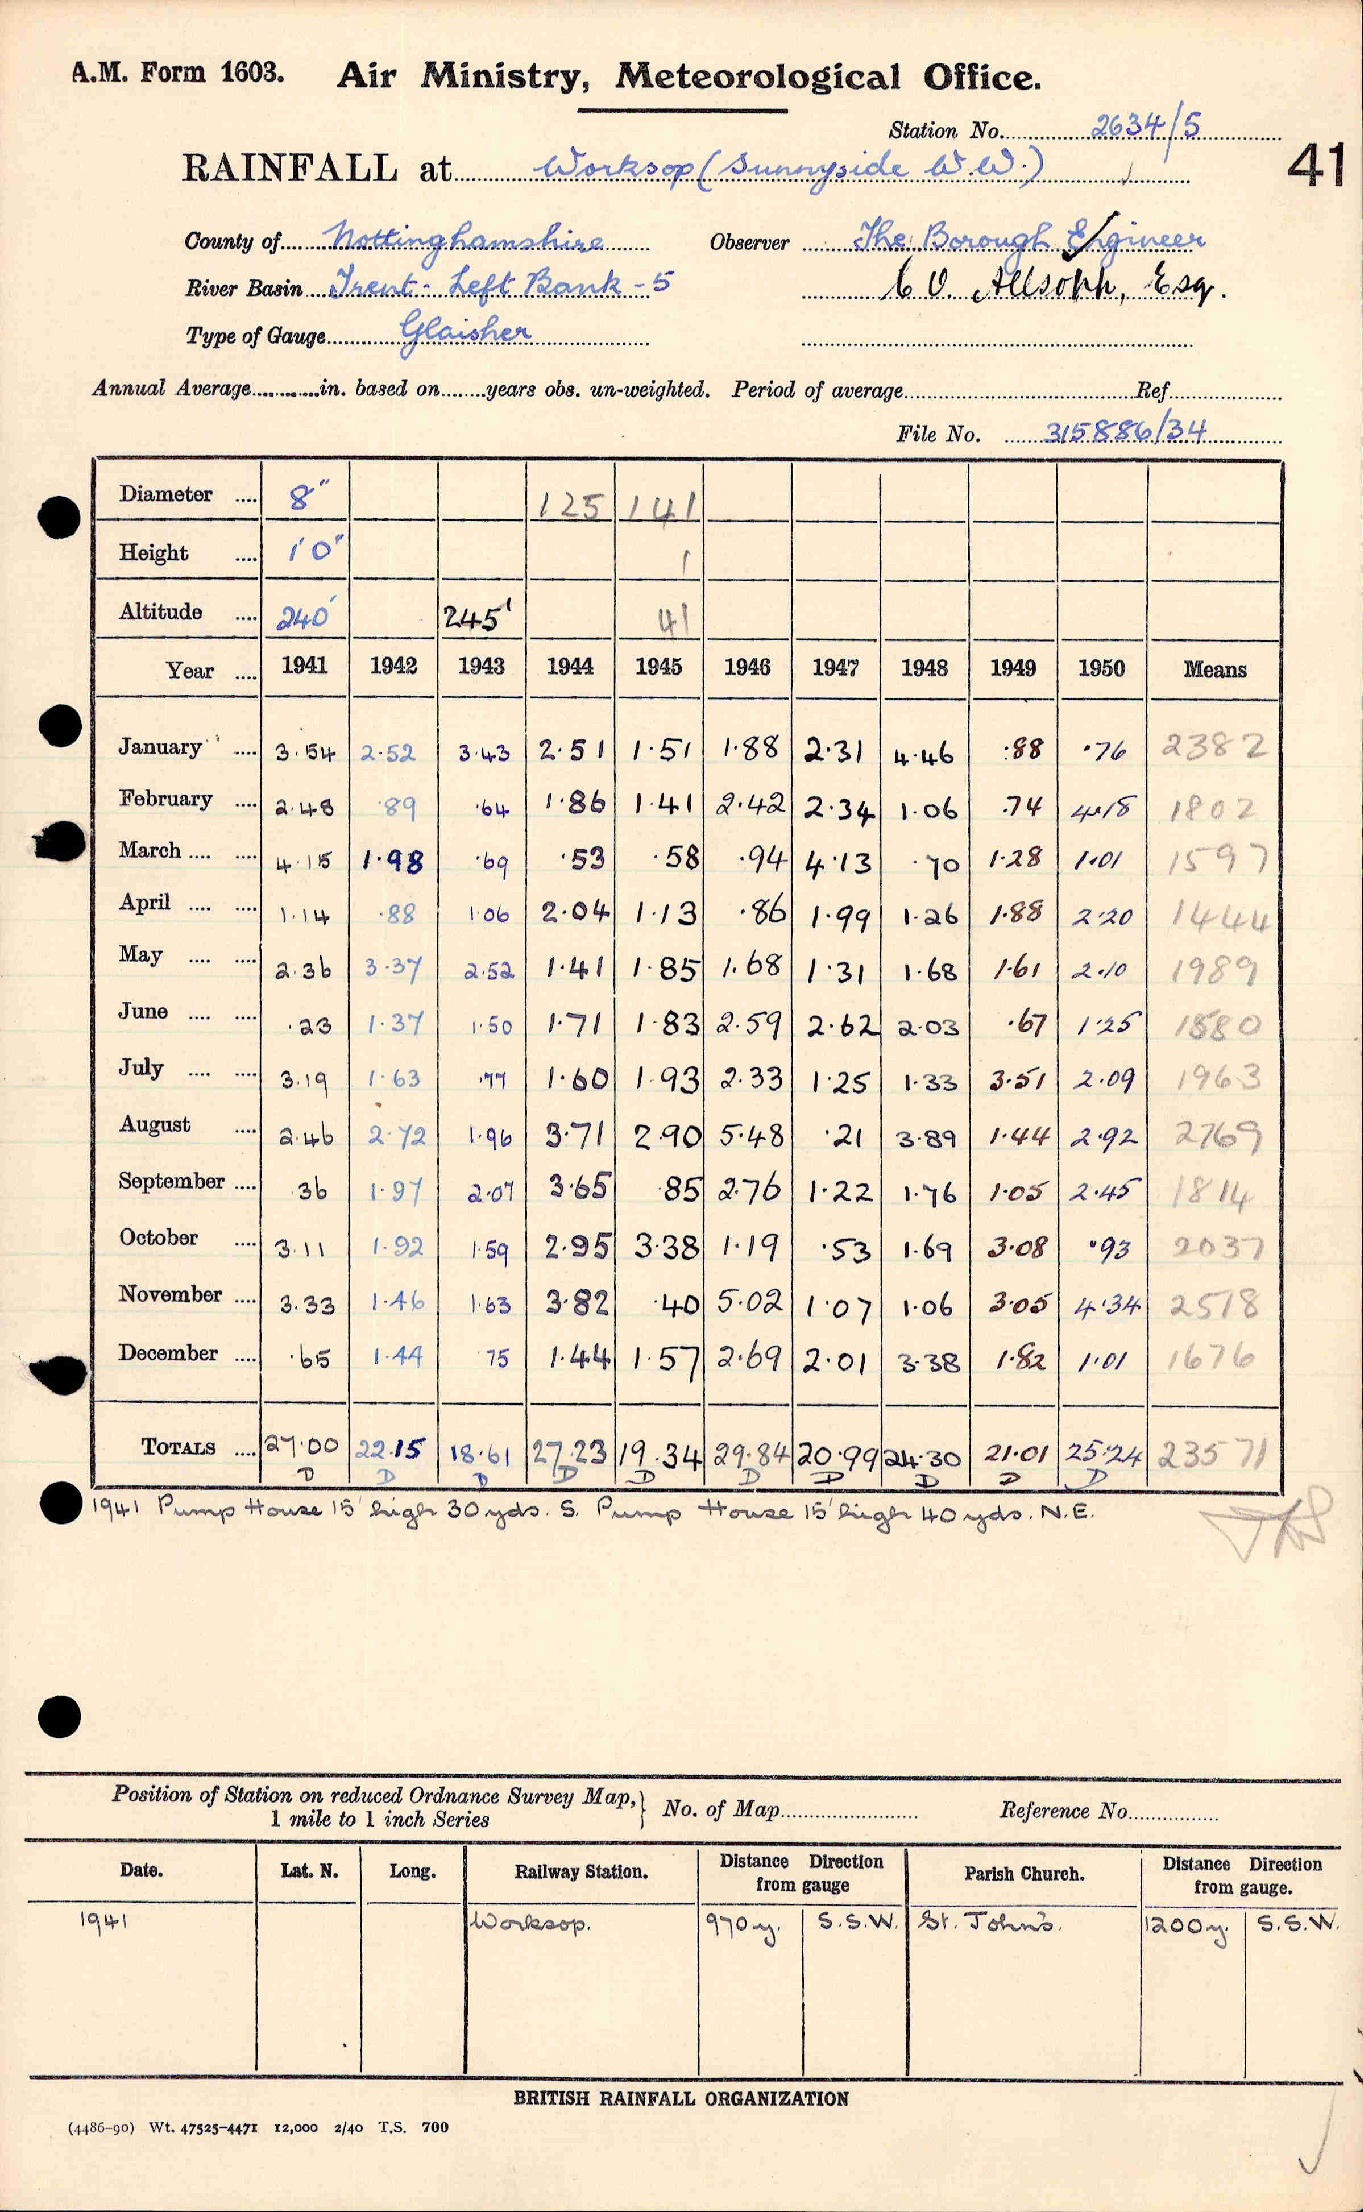 A.M. Form 1603. Air Ministry, Meteorological Office.
Station No. 2634/5
41
RAINFALL at Worksop (Sunnyside W.W.)
County of Nottinghamshire Observer The Borough Engineer
River Basin Trent - Left Bank - 5 C V. Allsopp, Esq.
Type of Gauge Glaisher
Annual Average in. based on years obs. un-weighted. Period of average Ref
File No. 315886/34
Diameter 8" 125 141
Height 1'0" 1
Altitude 240' 245' 41
Year 1941 1942 1943 1944 1945 1946 1947 1948 1949 1950 Means
January 3.54 2.52 3.43 2.51 1.51 1.88 2.31 4.46 .88 .76 2382
February 2.48 .89 .64 1.86 1.41 2.42 2.34 1.06 .74 4.18 1802
March 4.15 1.98 .69 .53 .58 .94 4.13 .70 1.28 1.01 1597
April 1.14 .88 1.06 2.04 1.13 .86 1.99 1.26 1.88 2.20 1444
May 2.36 3.37 2.52 1.41 1.85 1.68 1.31 1.68 1.61 2.10 1989
June .23 1.37 1.50 1.71 1.83 2.59 2.62 2.03 .67 1.25 1580
July 3.19 1.63 .77 1.60 1.93 2.33 1.25 1.33 3.51 2.09 1963
August 2.46 2.72 1.96 3.71 2.90 5.48 .21 3.89 1.44 2.92 2769
September 36 1.97 2.07 3.65 .85 2.76 1.22 1.76 1.05 2.45 1814
October 3.11 1.92 1.59 2.95 3.38 1.19 .53 1.69 3.08 .93 2037
November 3.33 1.46 1.63 3.82 .40 5.02 1.07 1.06 3.05 4.34 2518
December .65 1.44 75 1.44 1.57 2.69 2.01 3.38 1.82 1.01 1676
TOTALS 27.00 22.15 18.61 27.23 19.34 29.84 20.99 24.30 21.01 25.24 23571
D D D D D D D D D D
1941 Pump House 15' high 30 yds. S. Pump House 15' high 40 yds. N.E.
Position of Station on reduced Ordnance Survey Map, 1 mile to 1 inch Series } No. of Map Reference No.
Date. Lat. N. Long. Railway Station. Distance Direction from gauge Parish Church. Distance Direction from gauge.
1941 Worksop. 970 y. S.S.W. St. John's. 1200 y. S.S.W.
BRITISH RAINFALL ORGANIZATION
(4486-90) Wt. 47525-4471 12,000 2/40 T.S. 700